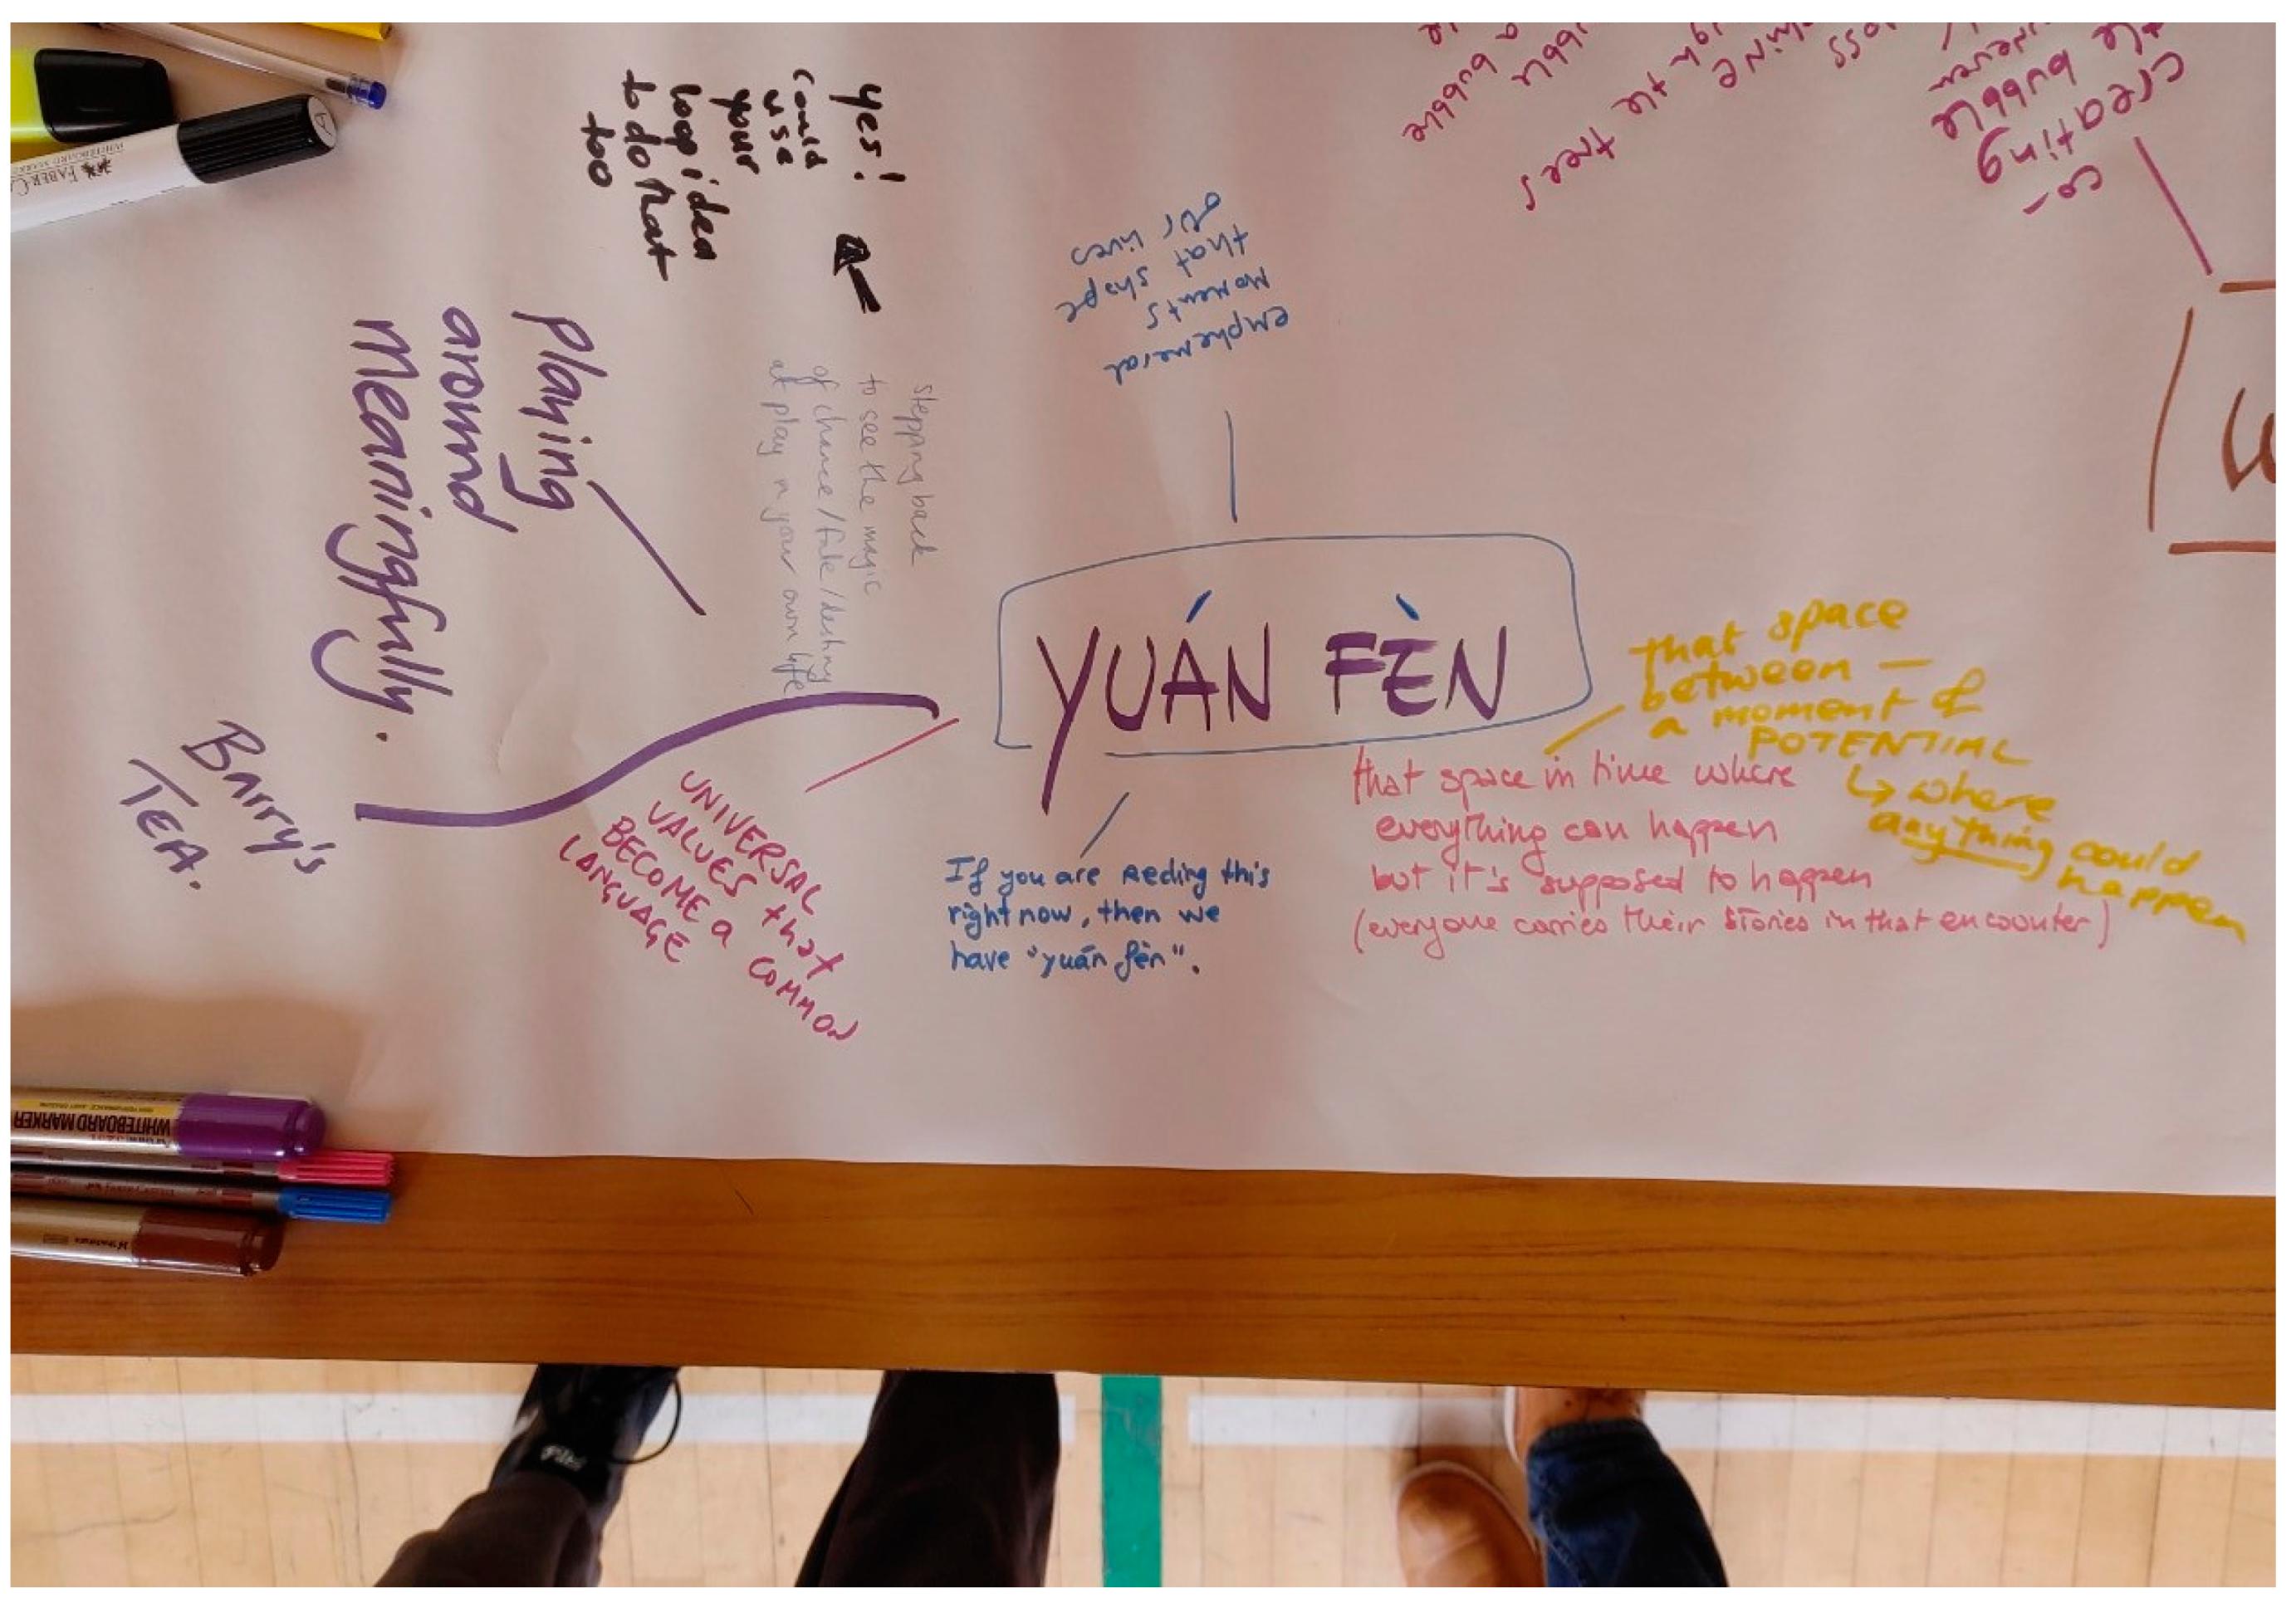 yes!
could
use
your
loop idea
to do that
too
playing
around
Meaningfully.
stepping back
to see the magic
of chance/fate/destiny
at play in your own life
emphemeral
moments
that shape
our lives
co-
creating
bubble
trees
a bubble
YUÁN FÈN
that space
between —
a moment of
POTENTIAL
↳ where
anything could
happen
that space in time where
everything can happen
but it's supposed to happen
(everyone carries their stories in that encounter)
If you are reding this
right now, then we
have "yuán fèn".
UNIVERSAL
VALUES that
BECOME a COMMON
LANGUAGE
Barry's
TEA.
FABER-C
WHITEBOARD MARK
WHITEBOARD MARKER
fila